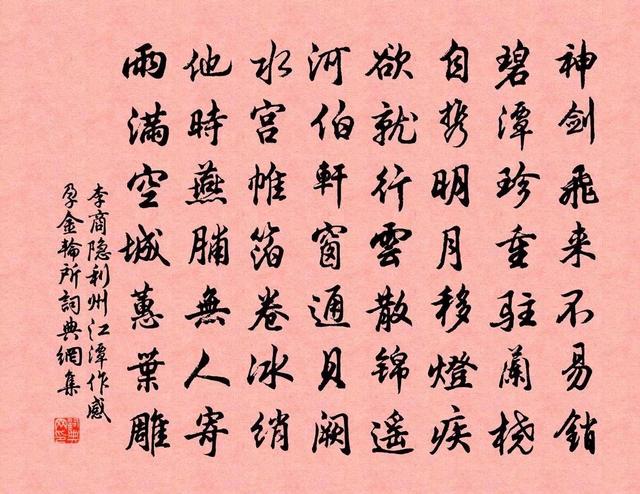 神剑飛来不易銷
碧潭珍重駐蘭橈
自携明月移燈疾
欲就行雲散錦遥
河伯軒窗通貝阙
水宫帷箔卷冰绡
他時燕脯無人寄
雨满空城蕙葉雕
李商隐利州江潭作感
孕金輪所詞典網集